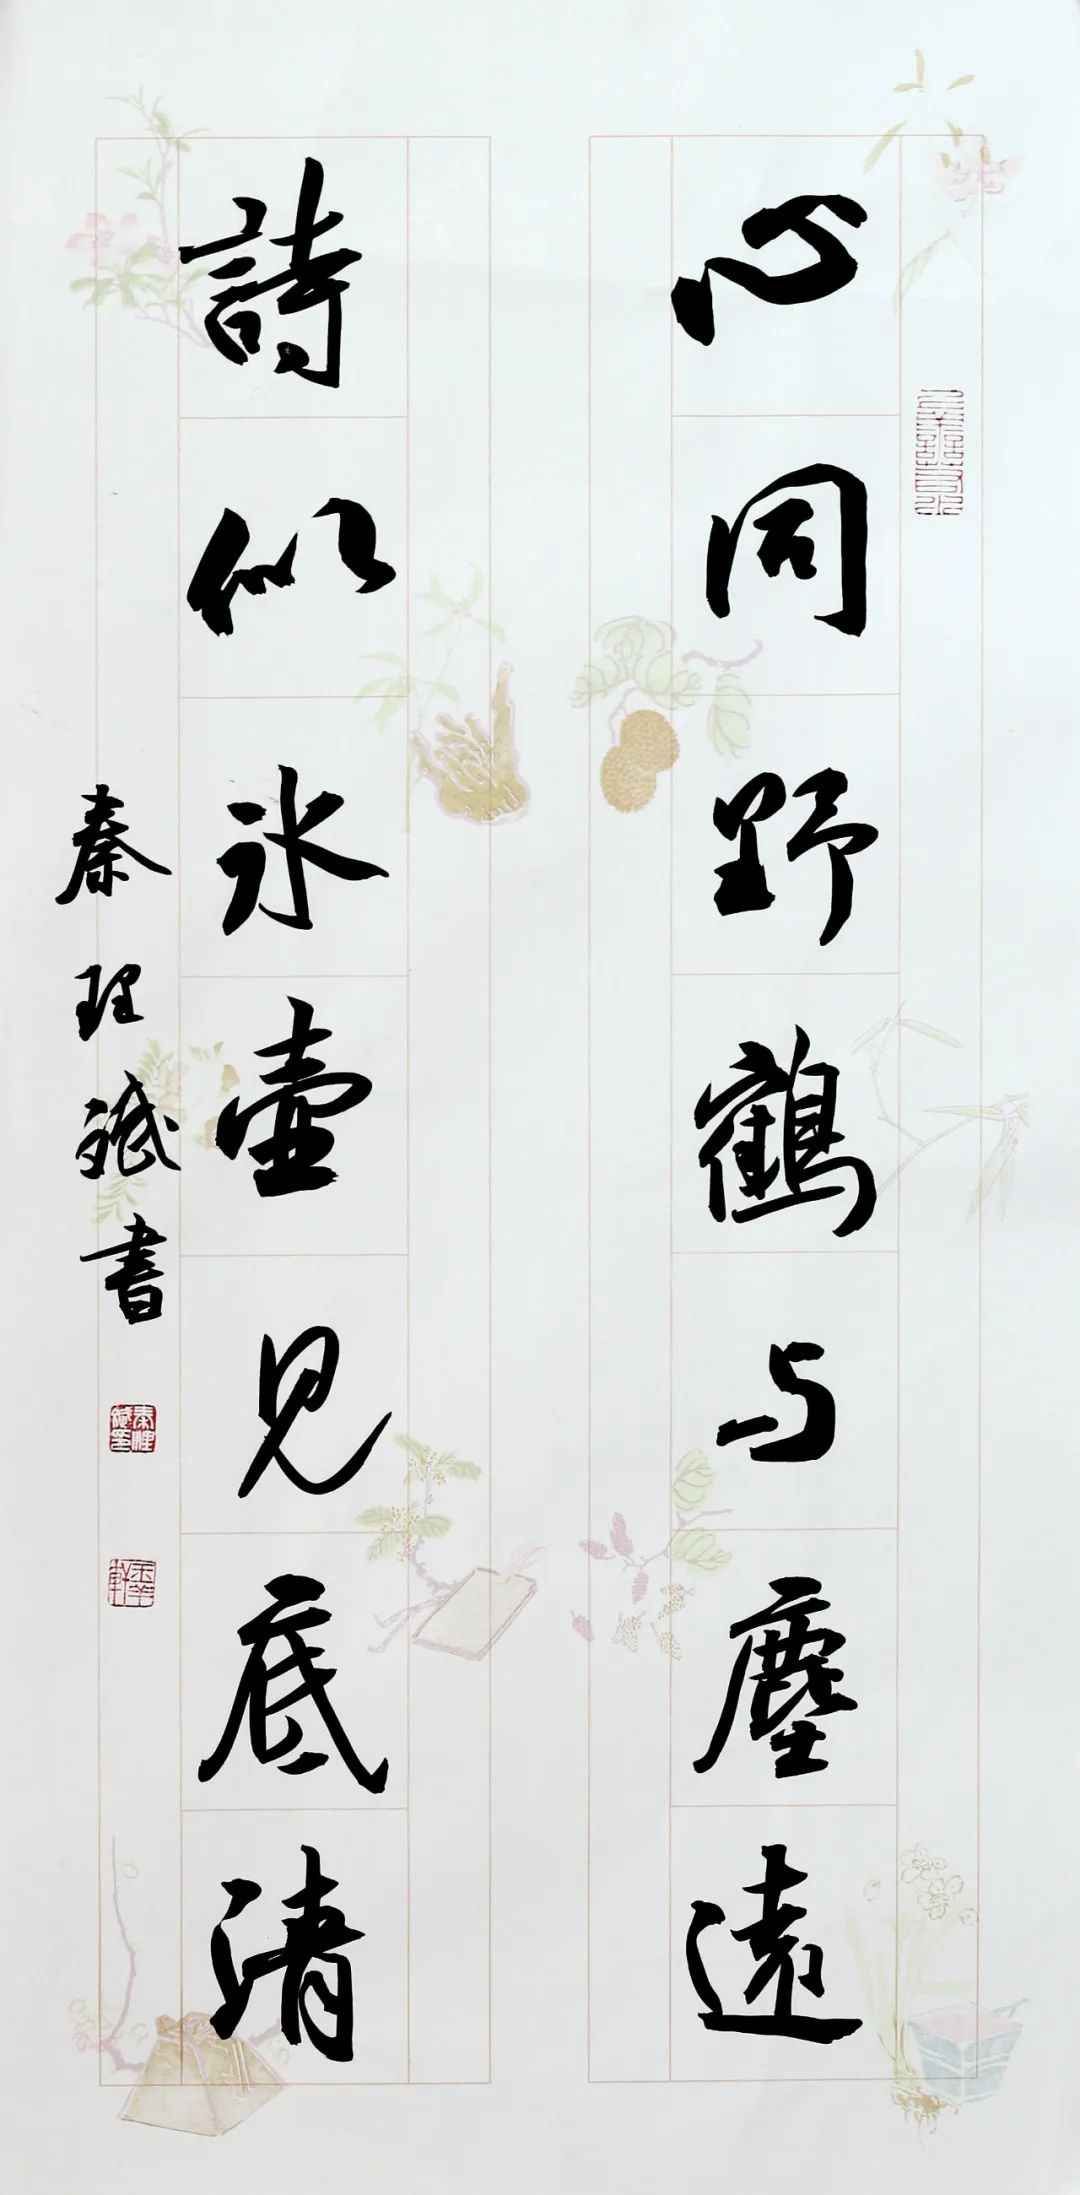 心同野鶴与塵遠
詩似冰壺見底清
秦理斌書